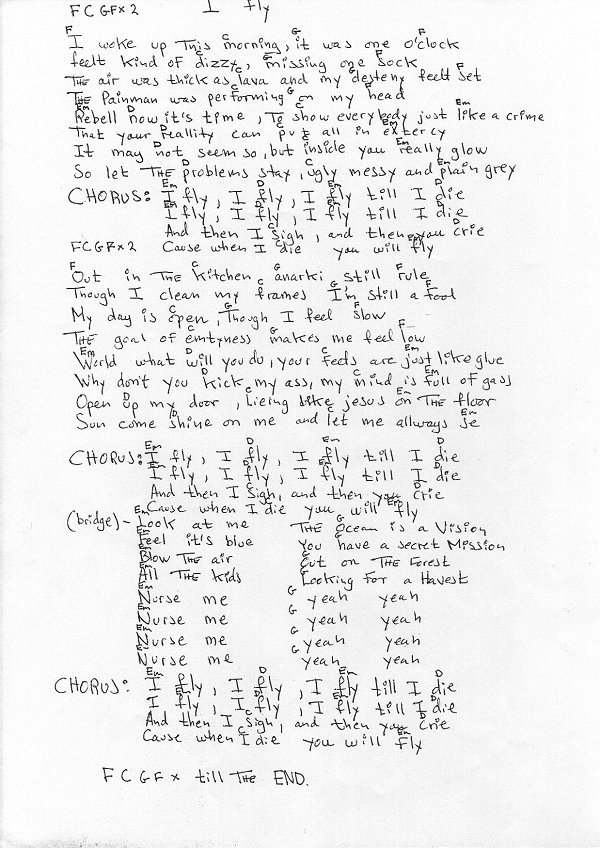 FCGFx2 I fly
F C G F
I woke up This morning, it was one o'clock
C G F
feelt kind of dizzy, missing one sock
C G F
THE air was thick as lava and my desteny feelt set
C G F
THE Painman was performing on my head
Em D C Em
Rebell now it's time, To show everybody just like a crime
D C Em
That your reallity can put all in extercy
D C Em
It may not seem so, but inside you really glow
D C Em
So let THE problems stay, ugly messy and plain grey
Em D Em D
CHORUS: I fly, I fly, I fly till I die
Em D Em D
I fly, I fly, I fly till I die
C D
And then I sigh, and then you crie
C Em
FCGFx2 Cause when I die you will fly
F C G F
Out in THE kitchen anarki still rule
C G F
Though I clean my frames I'm still a fool
C G F
My day is open, Though I feel slow
C G F
THE goal of emtyness makes me feel low
Em D C Em
World what will you do, your feets are just like glue
D C Em
Why don't you kick my ass, my mind is full of gass
D C Em
Open up my door, lieing like jesus on THE floor
D C Em
Sun come shine on me and let me allways se
Em D Em D
CHORUS: I fly, I fly, I fly till I die
Em D Em D
I fly, I fly, I fly till I die
C D
And then I sigh, and then you crie
C Em
Cause when I die you will fly
Em G
(bridge) - Look at me THE Ocean is a Vision
Em G
Feel it's blue You have a secret Mission
Em G
Blow THE air Cut on THE Forest
Em G
All THE kids Looking for a Havest
Em G
Nurse me yeah yeah
Em G
Nurse me yeah yeah
Em G
Nurse me yeah yeah
Em G
Nurse me yeah yeah
Em D Em D
CHORUS: I fly, I fly, I fly till I die
Em D Em D
I fly, I fly, I fly till I die
C D
And then I sigh, and then you crie
C Em
Cause when I die you will fly
FCGFx till THE END.